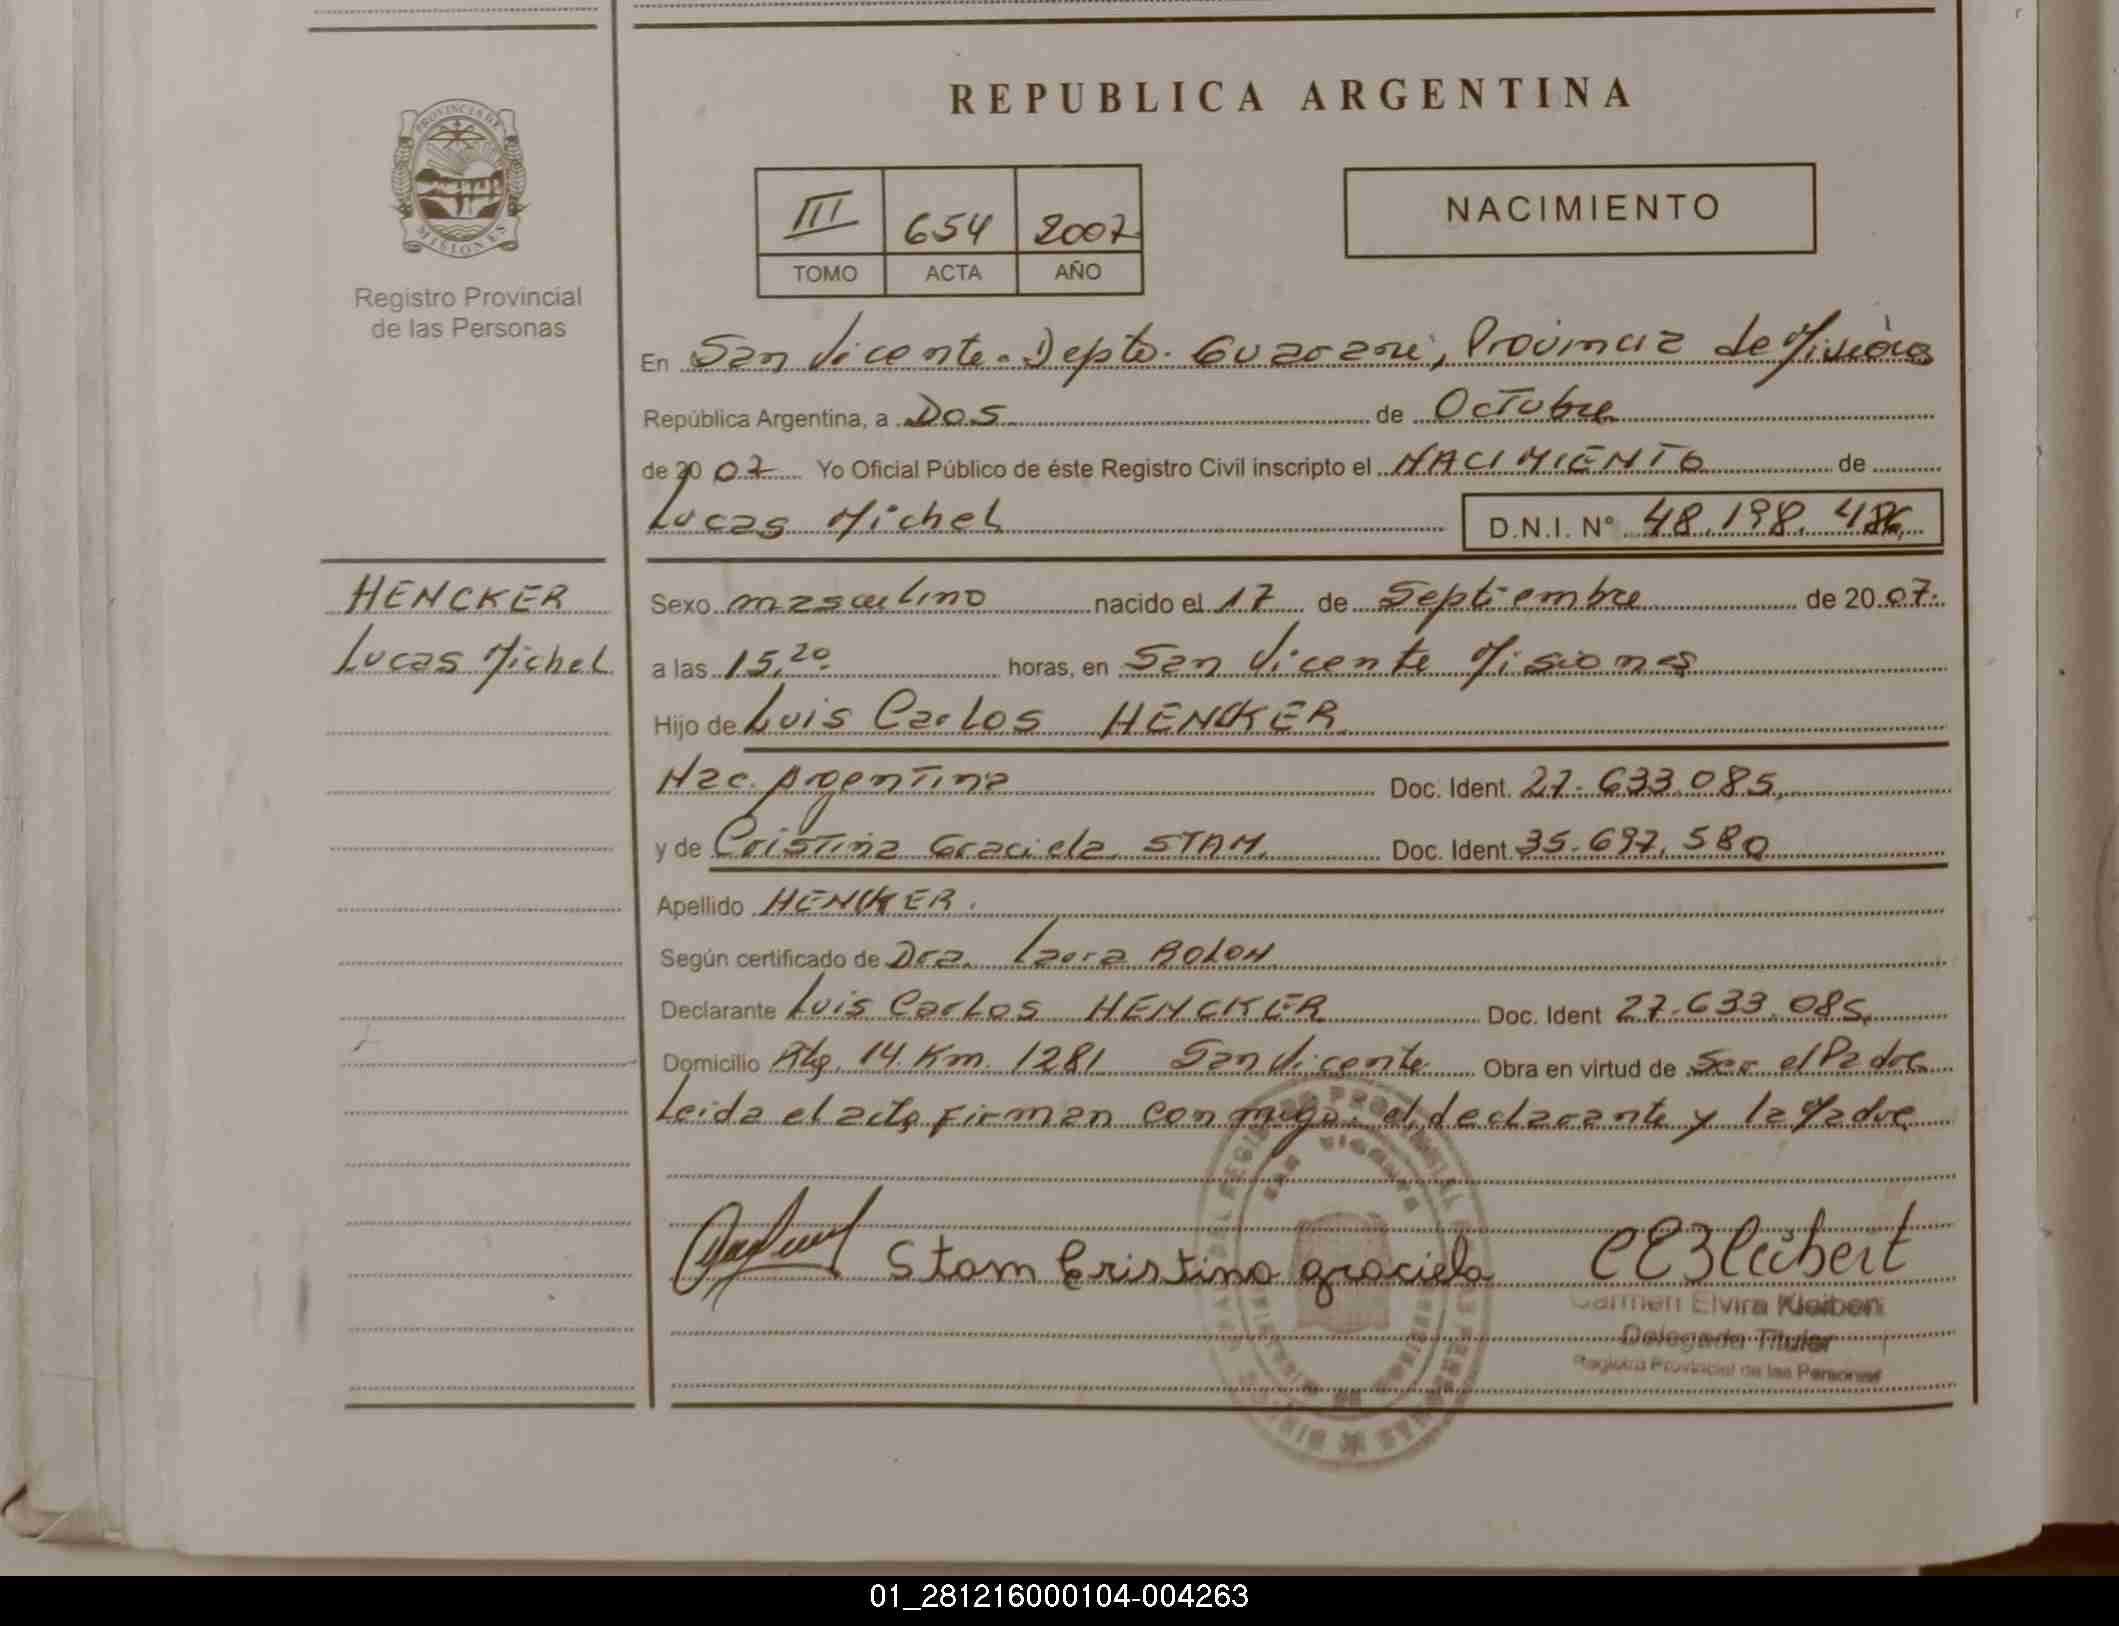 REPUBLICA ARGENTINA
PROVINCIA DE
MISIONES
Registro Provincial
de las Personas
III 654 2007
TOMO ACTA AÑO
NACIMIENTO
En San Vicente. Depto. Guarani, Provincia de Misiones
República Argentina, a Dos de Octubre
de 20 07 Yo Oficial Público de éste Registro Civil inscripto el NACIMIENTO de
Lucas Michel D.N.I. Nº 48.198.486
HENCKER
Lucas Michel
Sexo masculino nacido el 17 de Septiembre de 20 07.
a las 15,20 horas, en San Vicente Misiones
Hijo de Luis Carlos HENCKER
Nac. Argentina Doc. Ident. 27.633.085,
y de Cristina Graciela STAM. Doc. Ident. 35.697.580
Apellido HENCKER.
Según certificado de Dra. Laura BOLON
Declarante Luis Carlos HENCKER Doc. Ident 27.633.085,
Domicilio Rta. 14. Km. 1281 San Vicente Obra en virtud de Ser el Padre
Leida el acta firman conmigo el declarante y la Madre
Stam Cristina graciela
CEKleibert
Carmen Elvira Kleibert
Delegada Titular
Registro Provincial de las Personas
SAN VICENTE
01_281216000104-004263